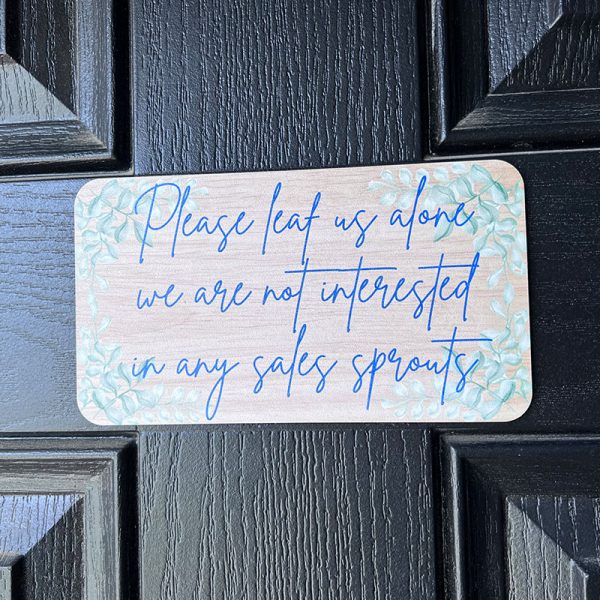 Please leaf us alone
we are not interested
in any sales sprouts